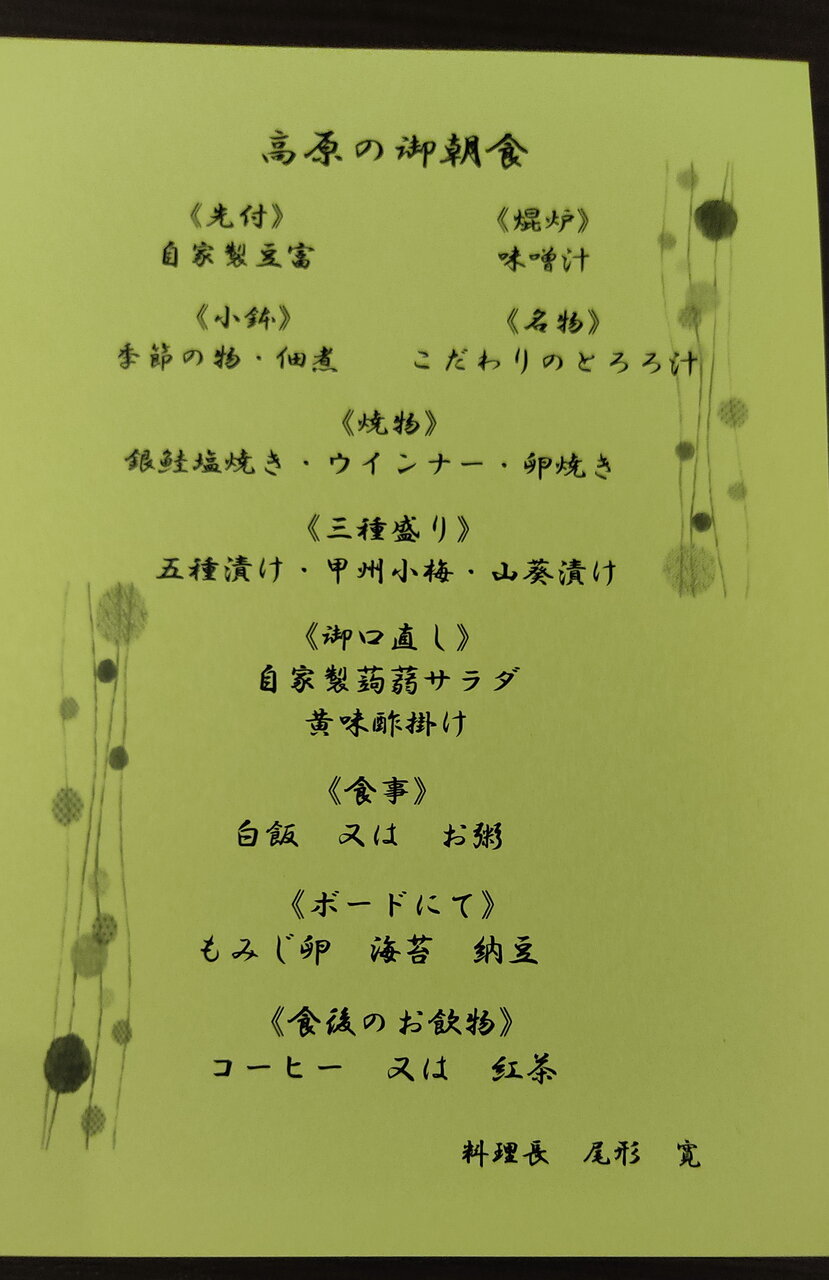 高原の御朝食
《先付》
自家製豆富
《焜炉》
味噌汁
《小鉢》
季節の物・佃煮
《名物》
こだわりのとろろ汁
《焼物》
銀鮭塩焼き・ウインナー・卵焼き
《三種盛り》
五種漬け・甲州小梅・山葵漬け
《御口直し》
自家製蒟蒻サラダ
黄味酢掛け
《食事》
白飯　又は　お粥
《ボードにて》
もみじ卵　海苔　納豆
《食後のお飲物》
コーヒー　又は　紅茶
料理長　尾形　寛